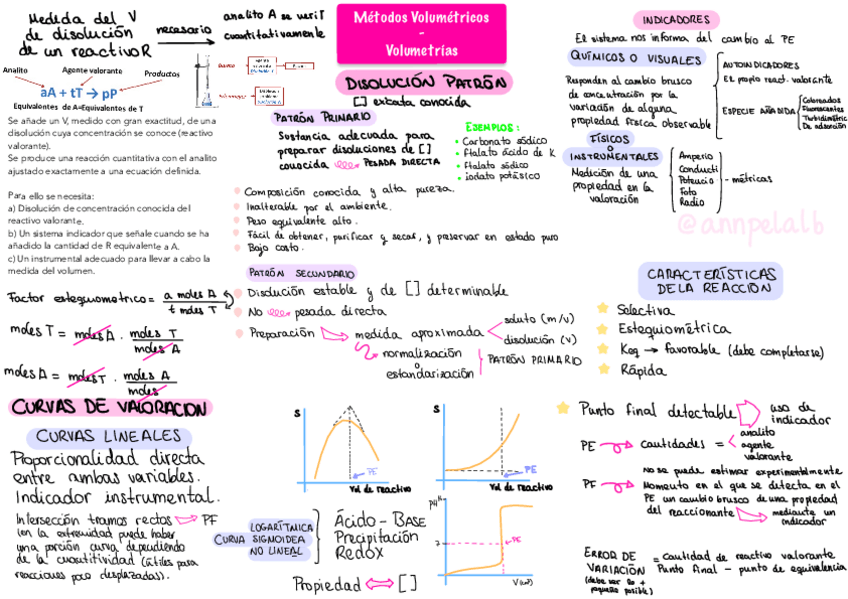 Medida del V
de disolución
de un reactivo R
necesario
analito A se verif
cuantitativamente
Analito
Agente valorante
Productos
aA + tT → pP
Equivalentes de A=Equivalentes de T
Se añade un V, medido con gran exactitud, de una
disolución cuya concentración se conoce (reactivo
valorante).
Se produce una reacción cuantitativa con el analito
ajustado exactamente a una ecuación definida.
Para ello se necesita:
a) Disolución de concentración conocida del
reactivo valorante.
b) Un sistema indicador que señale cuando se ha
añadido la cantidad de R equivalente a A.
c) Un instrumental adecuado para llevar a cabo la
medida del volumen.
Factor estequiometrico = a moles A
t moles T
moles T = moles A . moles T
moles A
moles A = moles T . moles A
moles
Métodos Volumétricos
-
Volumetrías
DISOLUCIÓN PATRÓN
[] exacta conocida
PATRÓN PRIMARIO
Sustancia adecuada para
preparar disoluciones de []
conocida
PESADA DIRECTA
EJEMPLOS:
Carbonato sódico
Ftalato ácido de K
Ftalato sódico
iodato potásico
Composición conocida y alta pureza.
Inalterable por el ambiente.
Peso equivalente alto.
Fácil de obtener, purificar y secar, y preservar en estado puro
Bajo costo.
PATRÓN SECUNDARIO
Disolución estable y de [] determinable
No pesada directa
Preparación
medida aproximada
soluto (m/v)
disolución (v)
normalización
o
estandarización
PATRÓN PRIMARIO
INDICADORES
El sistema nos informa del cambio al PE
QUÍMICOS O VISUALES
Responden al cambio brusco
de concentración por la
variación de alguna
propiedad física observable
AUTOINDICADORES
El propio react. valorante
ESPECIE AÑADIDA
Coloreados
Fluorescentes
Turbidimétric
De adsorción
FÍSICOS
O
INSTRUMENTALES
Medición de una
propiedad en la
valoración
Amperio
Conducti
Potencio
Foto
Radio
-métricas
@annpelalb
CARACTERÍSTICAS
DE LA REACCION
Selectiva
Estequiométrica
Keq → favorable (debe completarse)
Rápida
Punto final detectable
uso de
indicador
PE
cantidades =
analito
agente
valorante
No se puede estimar experimentalmente
PF
Momento en el que se detecta en el
PE un cambio brusco de una propiedad
del reaccionante
mediante un
indicador
ERROR DE
VARIACIÓN
(debe ser lo +
pequeño posible)
= Cantidad de reactivo valorante
Punto final - punto de equivalencia
CURVAS DE VALORACION
CURVAS LINEALES
Proporcionalidad directa
entre ambas variables.
Indicador instrumental.
Intersección tramos rectos
PF
(en la extremidad puede haber
una porción curva dependiendo
de la cuantitividad (útiles para
reacciones poco desplazadas).
S
PE
Vol de reactivo
S
PE
Vol de reactivo
LOGARÍTMICA
CURVA SIGMOIDEA
NO LINEAL
Ácido - Base
Precipitación
Redox
Propiedad ⟺ []
pH
7
PE
V (cm³)